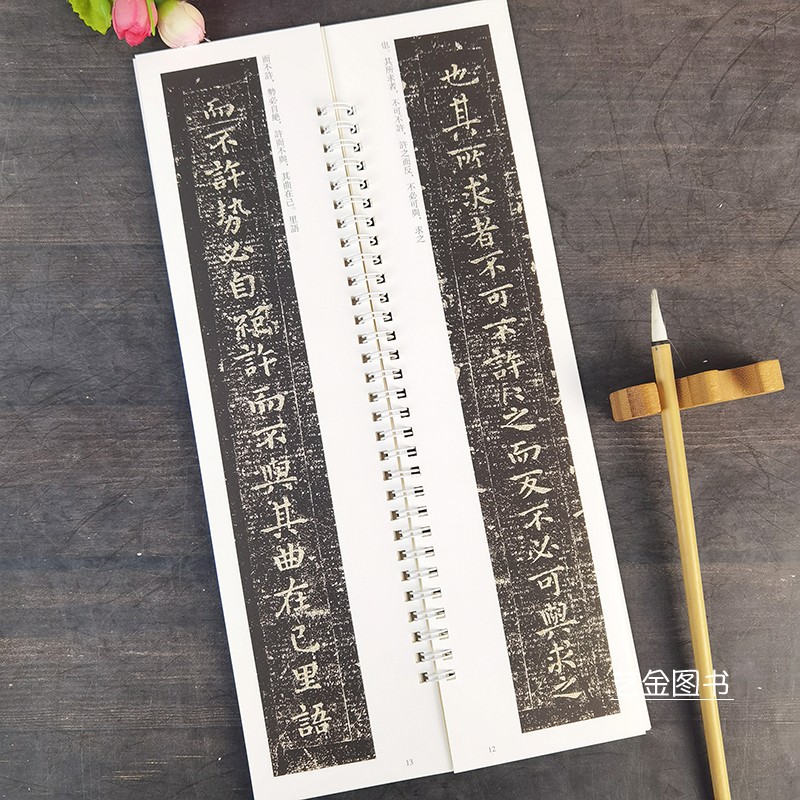 也其所求者不可不許〻之而反不必可與求之
也。其所求者，不可不許，許之而反，不必可與，求之
12
而不許，勢必自絕，許而不與，其曲在己。里語
而不許勢必自絕許而不與其曲在己里語
13
金图书